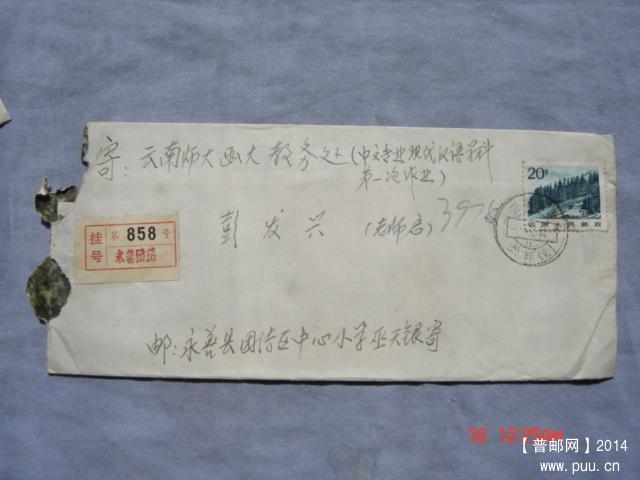 寄：云南师大函大教务处（中文专业现代汉语学科
第二次作业）
彭发兴（老师启）
邮：永善县团结区中心小学巫天银寄
挂号
第858号
永善团结
20分
中国人民邮政
16 12:25AM
【普邮网】2014
www.puu.cn